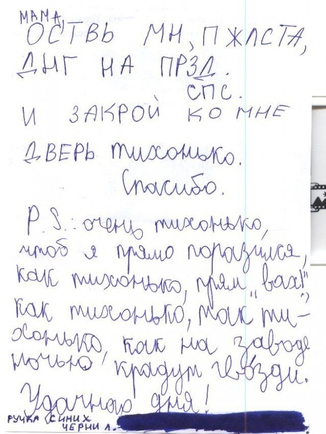 МАМА,
ОСТВЬ МН, ПЖЛСТА,
ДНГ НА ПРЗД.
СПС.
И ЗАКРОЙ КО МНЕ
ДВЕРЬ тихонько.
Спасибо.
P.S.: очень тихонько,
чтоб я прямо поразился,
как тихонько, прям "вах!",
как тихонько, так ти-
хонько, как на заводе
ночью крадут гвозди.
Удачного дня!
РУЧКА СИНИХ
ЧЕРНИЛ.